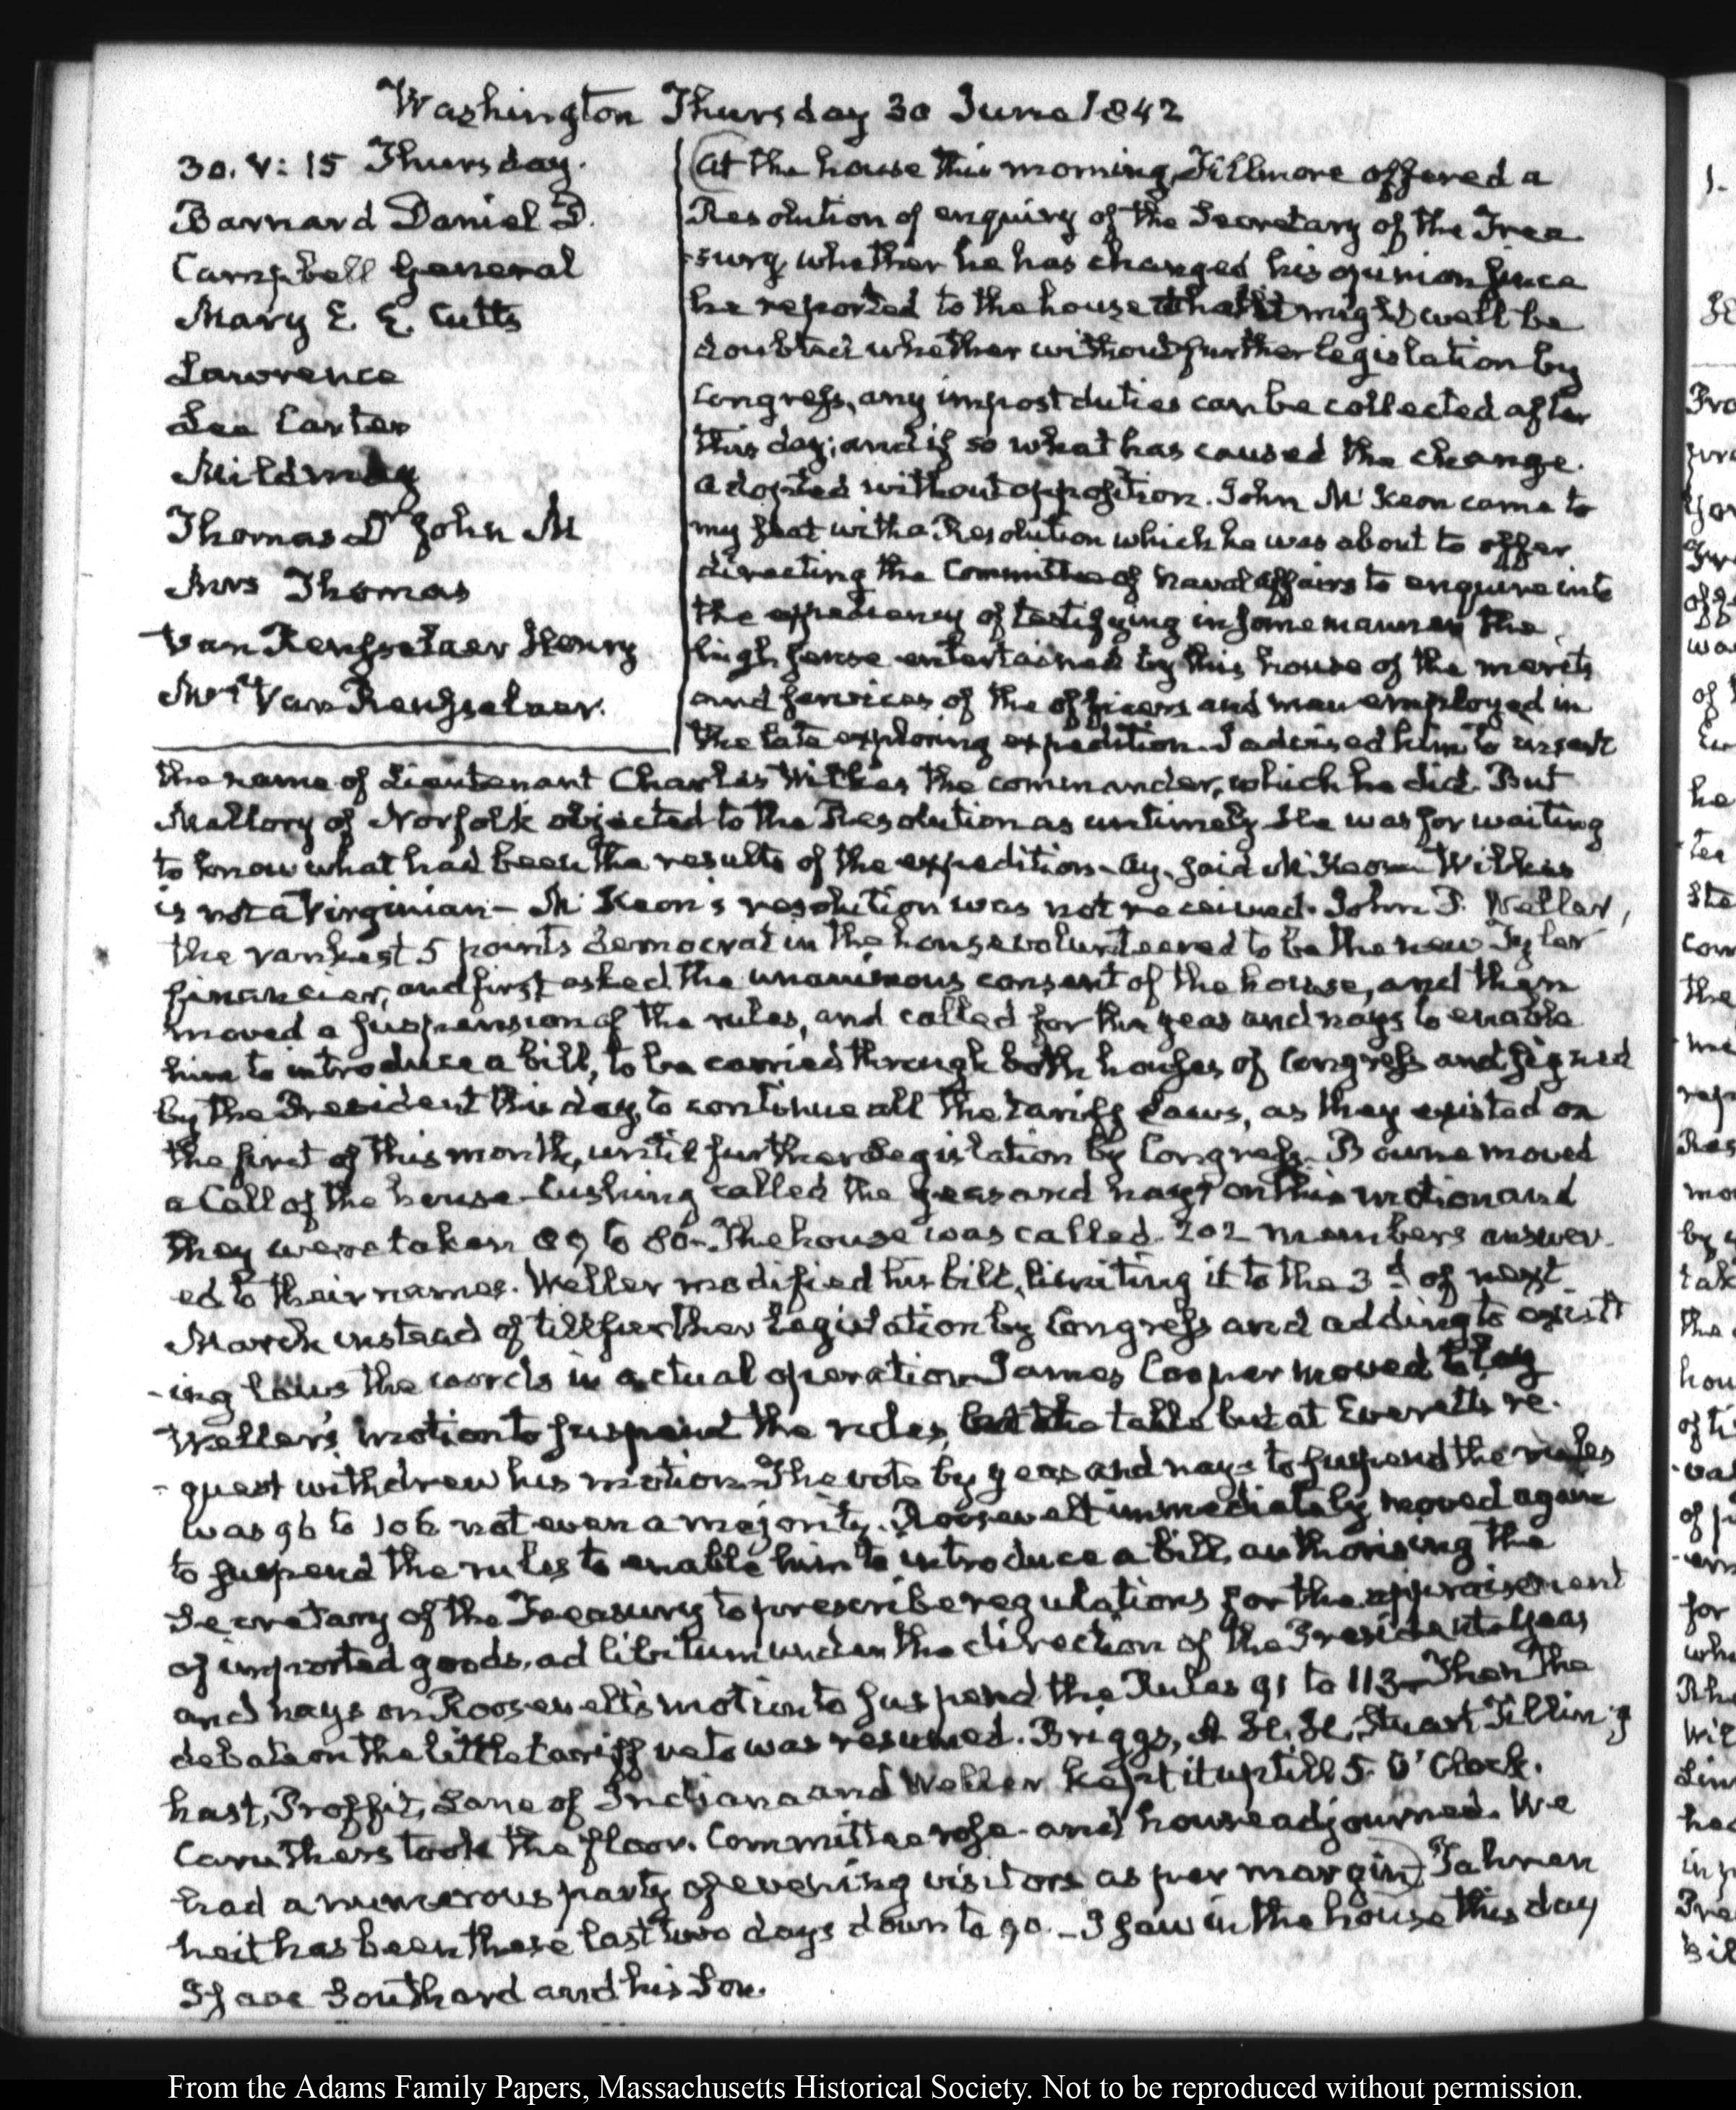 Washington Thursday 30 June 1842
30. V: 15 Thursday.
Barnard Daniel D.
Campbell General
Mary E. E. Cutts
Lawrence
Lee Carter
Mildmay
Thomas Dr John M
Mrs Thomas
Van Rensselaer Henry
Mrs Van Rensselaer.
At the house this morning, Fillmore offered a
Resolution of enquiry of the Secretary of the Trea-
-sury, whether he has changed his opinion since
he reported to the house that it might well be
doubted whether without further legislation by
Congress, any impost duties can be collected after
this day; and if so what has caused the change.
adopted without opposition. John McKeon came to
my seat with a Resolution which he was about to offer
directing the Committee of Naval affairs to enquire into
the expediency of testifying in some manner the
high sense entertained by this house of the merits
and services of the officers and men employed in
the late exploring expedition. I advised him to insert
the name of Lieutenant Charles Wilkes the commander, which he did. But
Mallory of Norfolk objected to the Resolution as untimely. He was for waiting
to know what had been the results of the expedition. Ay, said McKeon Wilkes
is not a Virginian— McKeon's resolution was not received. John B. Weller,
the rankest 5 points democrat in the house volunteered to be the new Tyler
financier, and first asked the unanimous consent of the house, and then
moved a suspension of the rules, and called for the yeas and nays to enable
him to introduce a bill, to be carried through both houses of Congress and signed
by the President this day, to continue all the tariff Laws, as they existed on
the first of this month, until further Legislation by Congress. Bowne moved
a Call of the house. Cushing called the yeas and nays on this motion and
they were taken 89 to 80. The house was called. 202 members answer-
ed to their names. Weller modified his bill, limiting it to the 3d of next
March instead of till further Legislation by Congress and adding to exist
-ing laws the words in actual operation. James Cooper moved to lay
Weller's motion to suspend the rules, on the table but at Everett's re-
-quest withdrew his motion. The vote by yeas and nays to suspend the rules
was 96 to 106 not even a majority. Roosevelt immediately moved again
to suspend the rules to enable him to introduce a bill, authorising the
Secretary of the Treasury to prescribe regulations for the appraisement
of imported goods, ad libitum under the direction of the President. Yeas
and nays on Roosevelt's motion to suspend the Rules 91 to 113. Then the
debate on the little tariff veto was resumed. Briggs, A. H. H. Stuart, Tilling-
hast, Proffit, Lane of Indiana and Weller kept it up till 5 O'Clock.
Caruthers took the floor. Committee rose and house adjourned. We
had a numerous party of evening visitors as per margin. Fahren
heit has been these last two days down to 70.—I saw in the house this day
Isaac Southard and his Son.
From the Adams Family Papers, Massachusetts Historical Society. Not to be reproduced without permission.